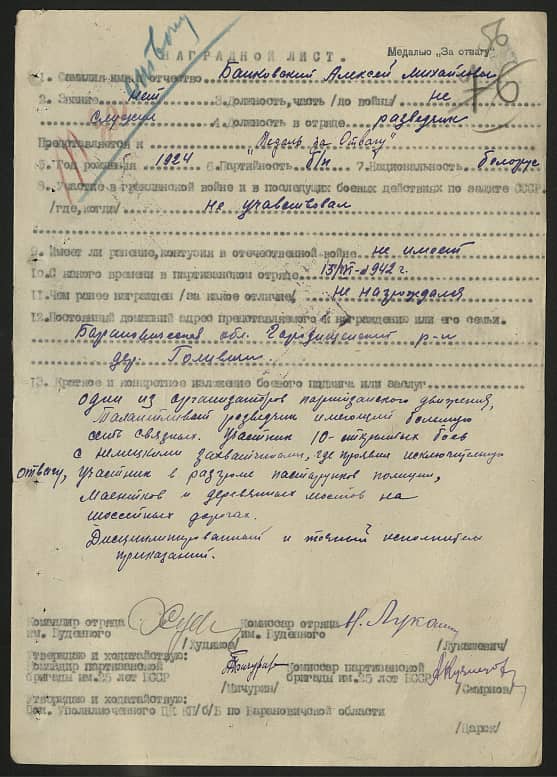 НАГРАДНОЙ ЛИСТ.
Медалью „За отвагу"
56
76
1. Фамилия имя и отчество Банковский Алексей Михайлович
2. Звание нет 3. Должность, часть /до войны/ не
служил 4. Должность в отряде разведчик
Представляется к „Медаль за Отвагу"
5. Год рождения 1924 6. Партийность б/п 7. Национальность белорус
8. Участие в гражданской войне и в последущих боевых действиях по защите СССР
/где, когда/ не учавствовал
9. Имеет ли ранение, контузия в отечественной войне не имеет
10. С какого времени в партизанском отряде 1942 г.
11. Чем ранее награжден /за какое отличие/ не награждался
12. Постоянный домашний адрес представляемого к награждению или его семьи.
Барановическая обл. Городищенский р-н
дер.
13. Краткое и конкретное изложение боевого подвига или заслуг
один из организаторов партизанского движения,
Талантливый разведчик имеющий большую
сеть связных. Участник 10-открытых боев
с немецкими захватчиками, где проявил исключительную
отвагу, участник в разгроме полиции,
и деревянных мостов на
шоссейных дорогах.
Дисциплинированный и точный исполнитель
приказаний.
Командир отряда Комиссар отряда
им. Буденного им. Буденного
/Худяков/ /Лукашевич/
Утверждаю и ходатайствую:
Командир партизанской Комиссар партизанской
бригады им. 25 лет БССР бригады им. 25 лет БССР
/Мичурин/ /Смирнов/
Утверждаю и ходатайствую:
Уполномоченного ЦК КП/б/Б по Барановичской области
/Царюк/